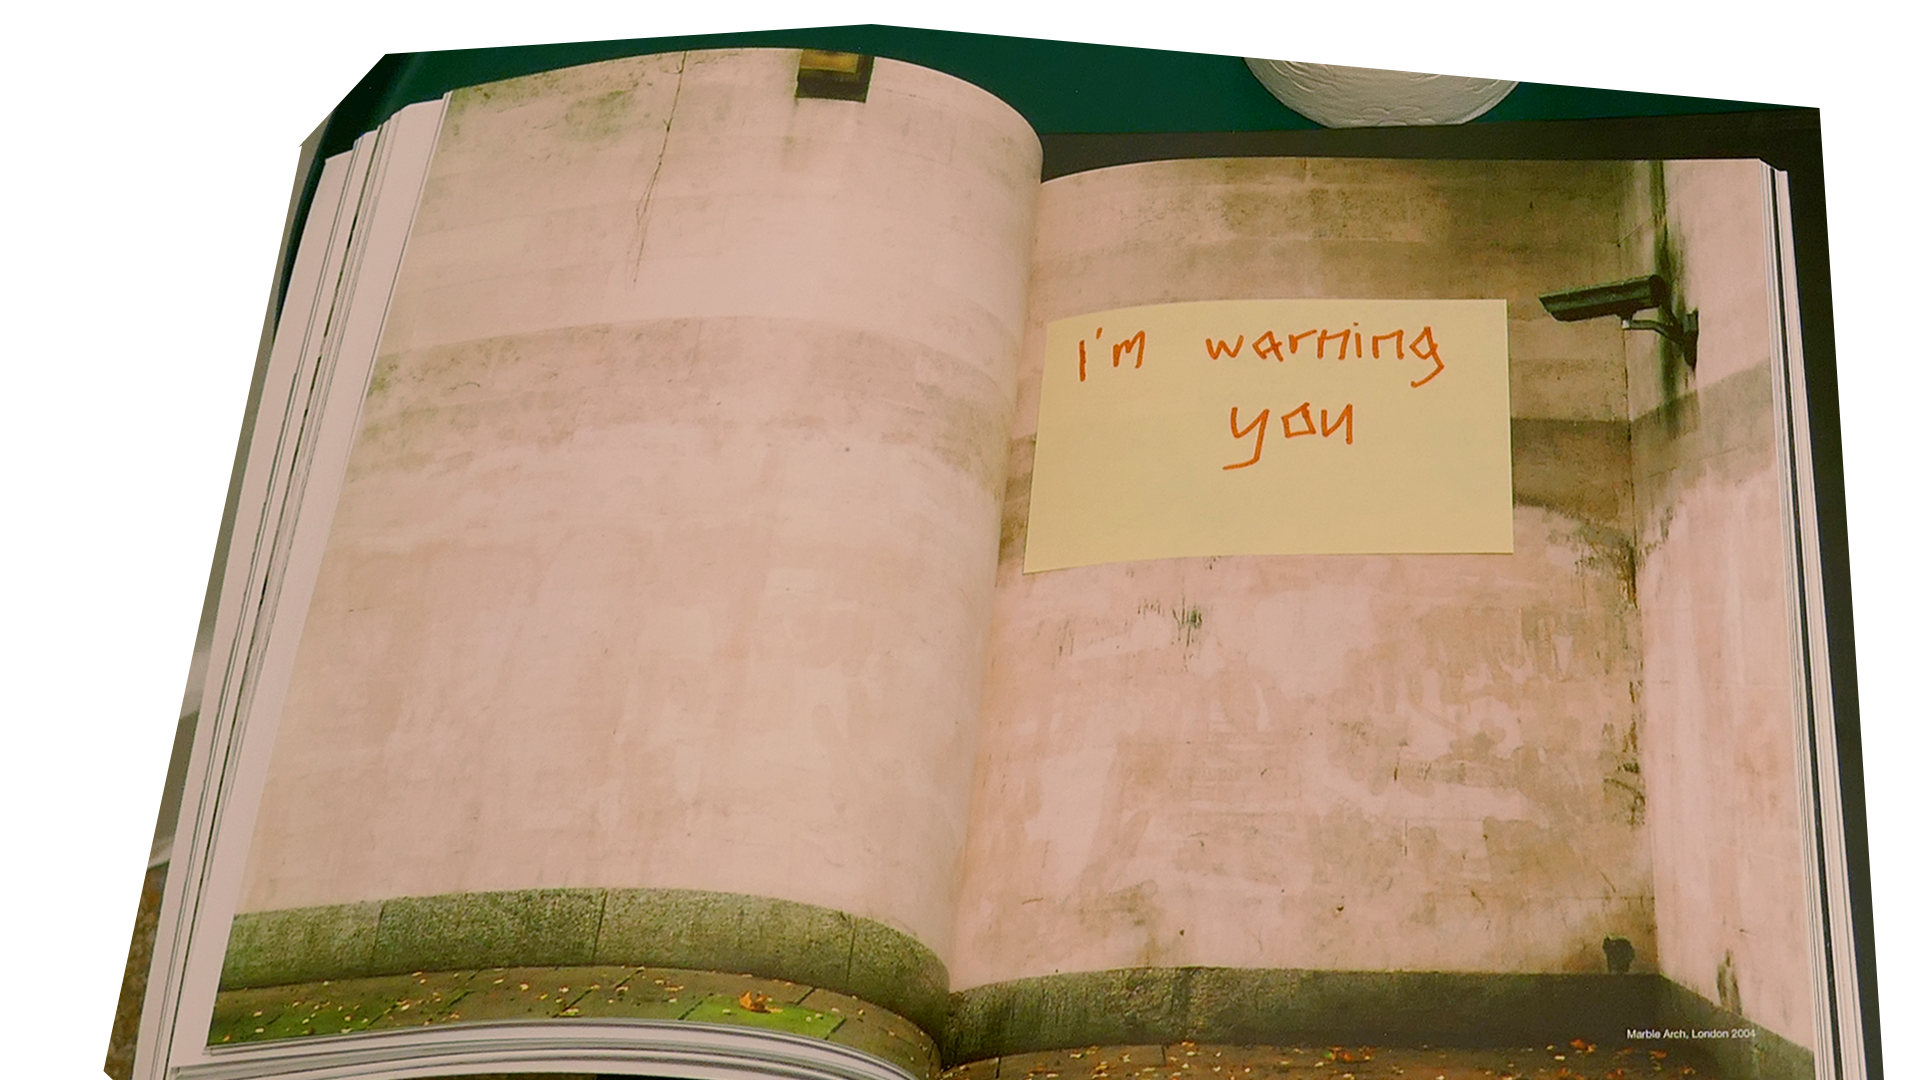 I'm warning
you
Marble Arch, London 2004